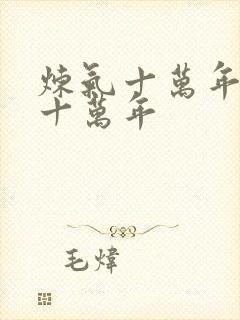 煉氣十萬年
十萬年
毛煒